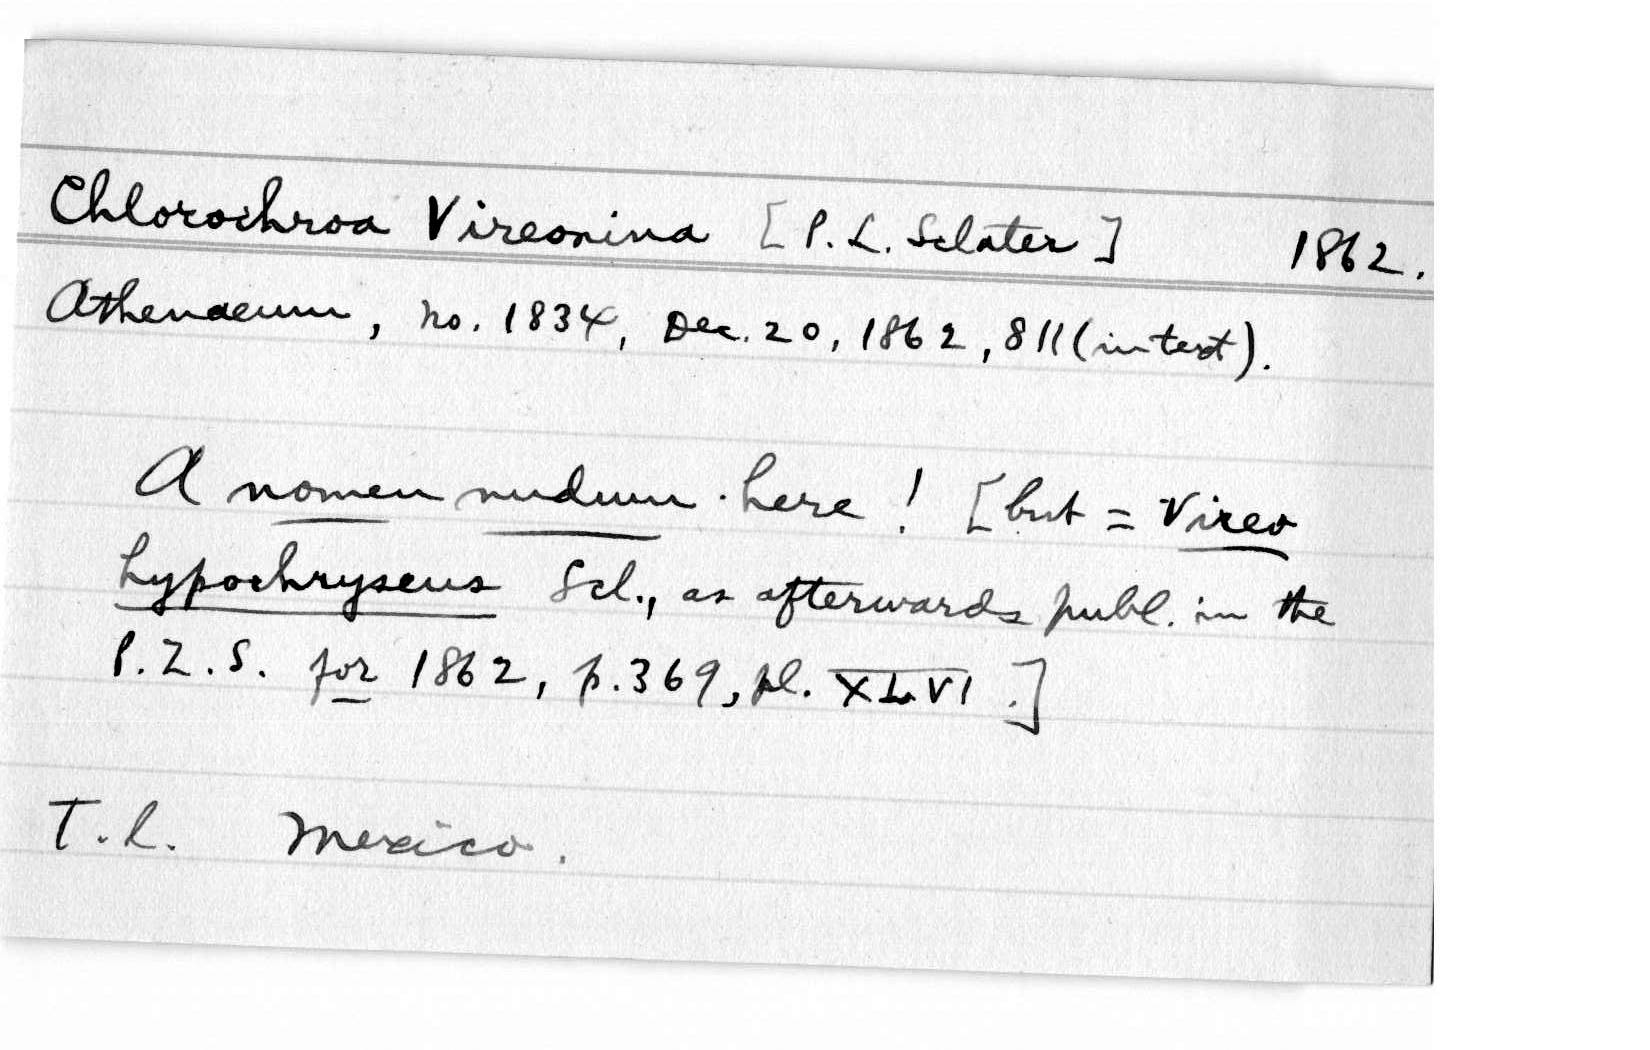 Chlorochroa Vireonina [P. L. Sclater] 1862.
Athenaeum, no. 1834, Dec. 20, 1862, 811 (in text).
A nomen nudum here! [but = Vireo
hypochryseus Scl., as afterwards publ. in the
P. Z. S. for 1862, p. 369, pl. XLVI.]
T. l. Mexico.